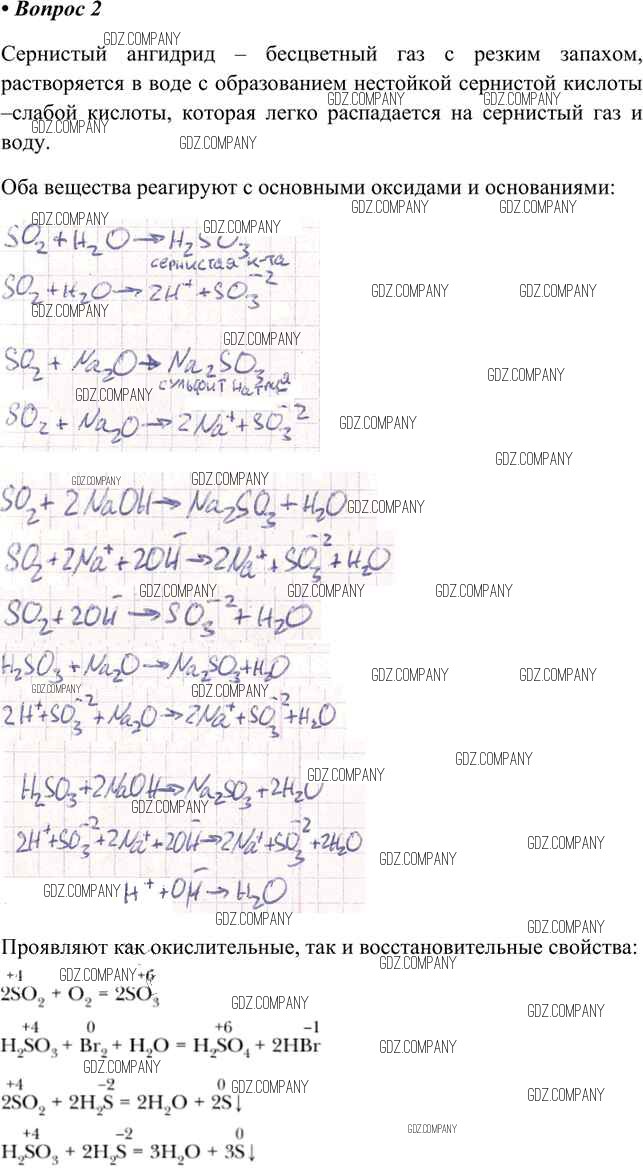 • Вопрос 2
Сернистый ангидрид – бесцветный газ с резким запахом,
растворяется в воде с образованием нестойкой сернистой кислоты
–слабой кислоты, которая легко распадается на сернистый газ и
воду.
Оба вещества реагируют с основными оксидами и основаниями:
SO₂ + H₂O → H₂SO₃
сернистая к-та
SO₂ + H₂O → 2H⁺ + SO₃⁻²
SO₂ + Na₂O → Na₂SO₃
сульфит натрия
SO₂ + Na₂O → 2Na⁺ + SO₃⁻²
SO₂ + 2NaOH → Na₂SO₃ + H₂O
SO₂ + 2Na⁺ + 2OH⁻ → 2Na⁺ + SO₃⁻² + H₂O
SO₂ + 2OH⁻ → SO₃⁻² + H₂O
H₂SO₃ + Na₂O → Na₂SO₃ + H₂O
2H⁺ + SO₃⁻² + Na₂O → 2Na⁺ + SO₃⁻² + H₂O
H₂SO₃ + 2NaOH → Na₂SO₃ + 2H₂O
2H⁺ + SO₃⁻² + 2Na⁺ + 2OH⁻ → 2Na⁺ + SO₃⁻² + 2H₂O
H⁺ + OH⁻ → H₂O
Проявляют как окислительные, так и восстановительные свойства:
+4 +6
2SO₂ + O₂ = 2SO₃
+4 0 +6 –1
H₂SO₃ + Br₂ + H₂O = H₂SO₄ + 2HBr
+4 –2 0
2SO₂ + 2H₂S = 2H₂O + 2S↓
+4 –2 0
H₂SO₃ + 2H₂S = 3H₂O + 3S↓
GDZ.COMPANY